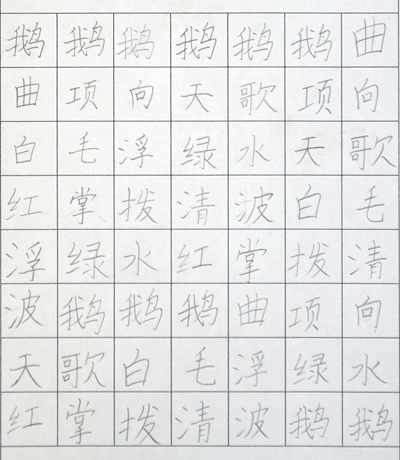 鹅鹅鹅鹅鹅鹅曲
曲项向天歌项向
白毛浮绿水天歌
红掌拨清波白毛
浮绿水红掌拨清
波鹅鹅鹅曲项向
天歌白毛浮绿水
红掌拨清波鹅鹅